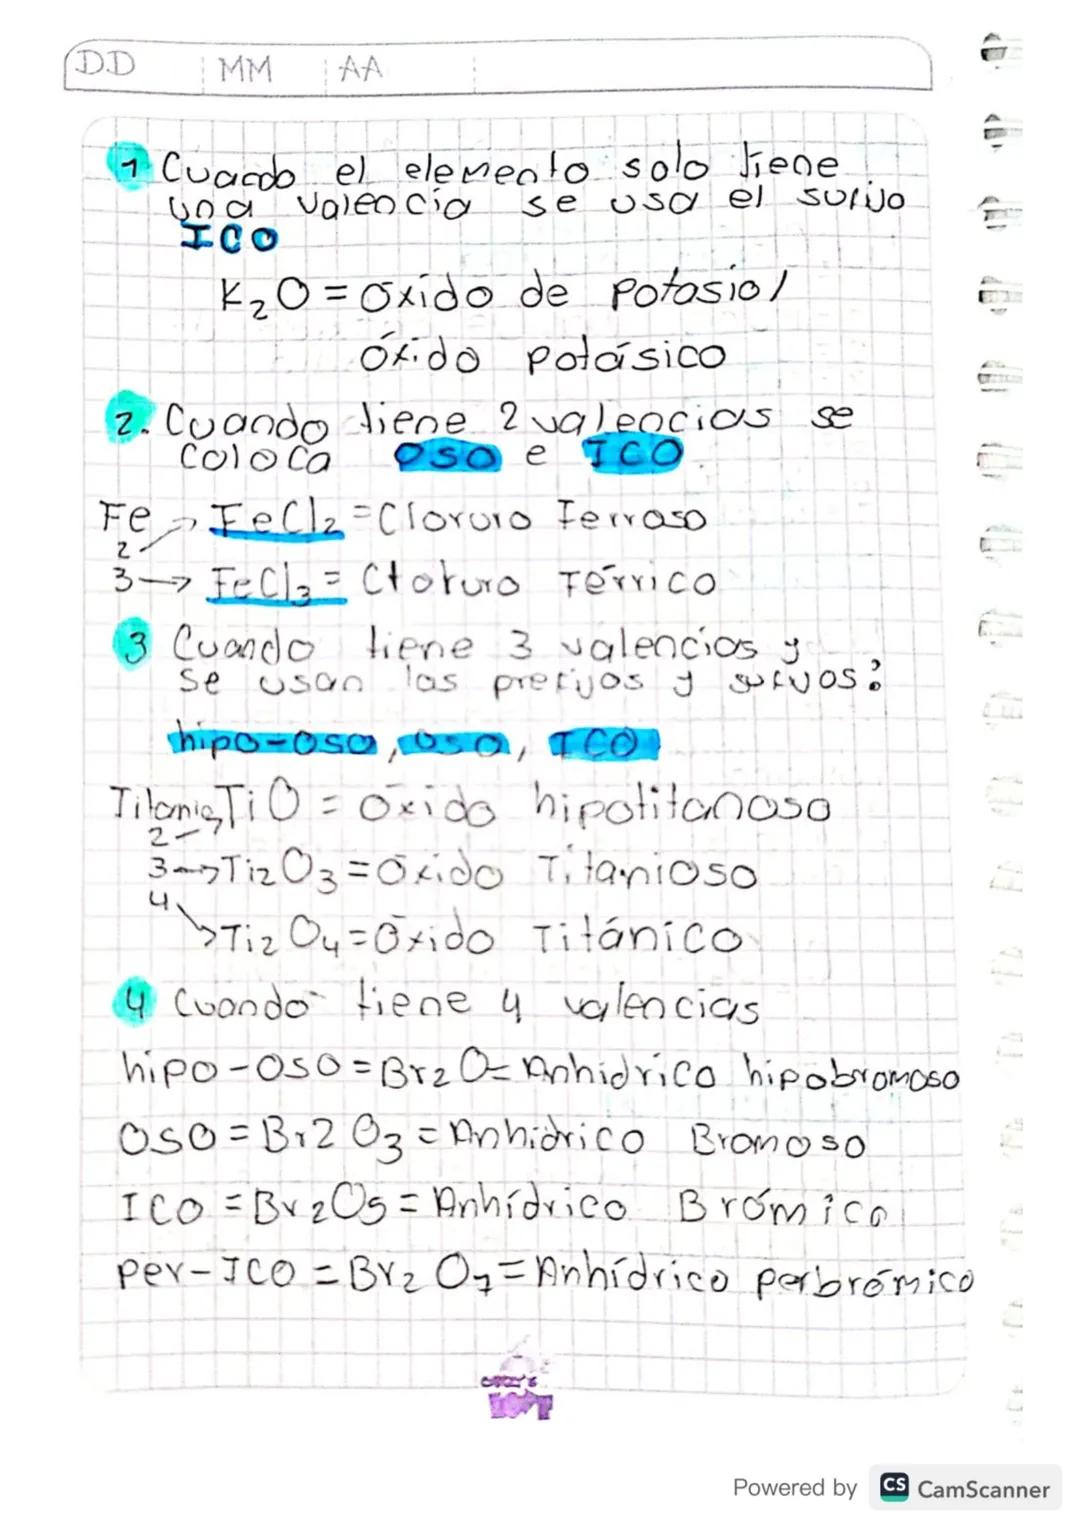 DD MM AA
1 Cuando el elemento solo tiene
una valencia se usa el sufijo
ICO
K₂O = óxido de potasio/
óxido potásico
2. Cuando tiene 2 valencias se
coloca OSO e ICO
Fe → FeCl₂ = Cloruro Ferroso
2
3 → FeCl₃ = Cloruro Férrico
3 Cuando tiene 3 valencias y
se usan las prefijos y sufijos:
hipo-oso, oso, ICO
Titanio TiO = óxido hipotitanoso
2 →
3 → Ti₂O₃ = óxido Titanioso
4
→ Ti₂O₄ = óxido Titánico
4 Cuando tiene 4 valencias
hipo-oso = Br₂O = Anhidrico hipobromoso
OSO = Br2O₃ = Anhidrico Bromoso
ICO = Br₂O₅ = Anhídrico Brómico
per-ICO = Br₂O₇ = Anhídrico perbrómico
Powered by CS CamScanner